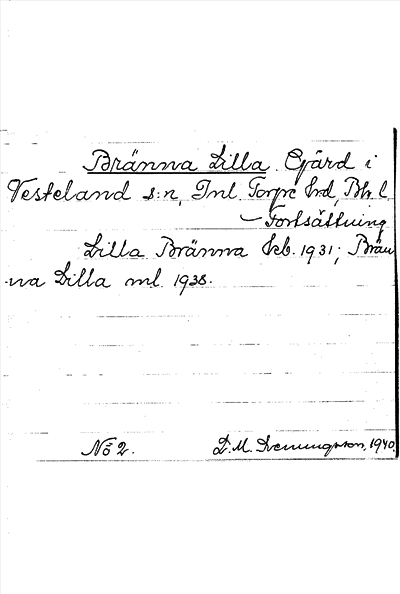 Bränna Lilla. Gård i
Vesteland s:n, Inl. Torpe hrd, Bh. l.
– Fortsättning
Lilla Bränna Ekb. 1931; Brän
na Lilla ml. 1938.
No 2. D. M. 1940.